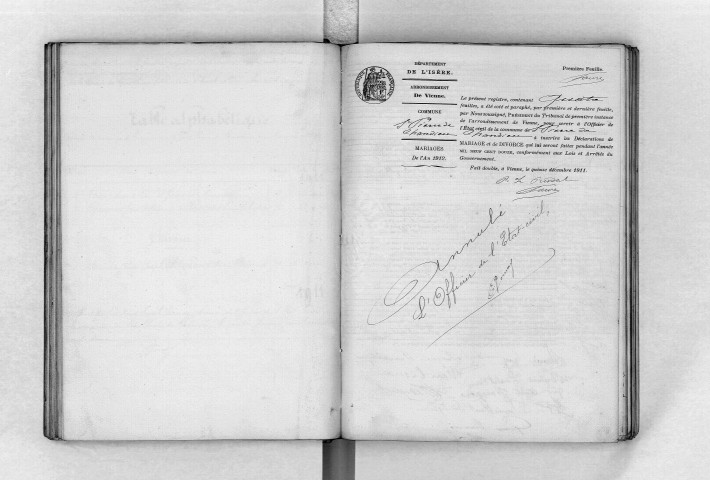 DÉPARTEMENT
DE L'ISÈRE.
ARRONDISSEMENT
De Vienne.
COMMUNE
St Pierre de
Chandieu
MARIAGES
De l'An 1912.
Première Feuille.
Le présent registre, contenant quatre
feuilles, a été coté et paraphé, par première et dernière feuille,
par Nous soussigné, Président du Tribunal de première instance
de l'arrondissement de Vienne, pour servir à l'Officier de
l'État civil de la commune de St Pierre de
Chandieu à inscrire les Déclarations de
MARIAGE et de DIVORCE qui lui seront faites pendant l'année
MIL NEUF CENT DOUZE, conformément aux Lois et Arrêtés du
Gouvernement.
Fait double, à Vienne, le quinze décembre 1911.
Annulé
L'Officier de l'Etat-civil,